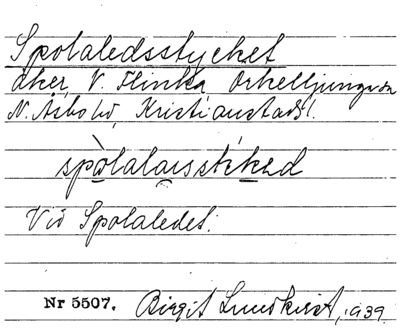 Spolaledsstycket
åker, V. Flinka, Örkelljunga sn
N. Åsbo hd, Kristianstads l.
spòlalaısstíkəd
Vid Spolaledet.
Nr 5507. Birgit Lundkvist, 1939